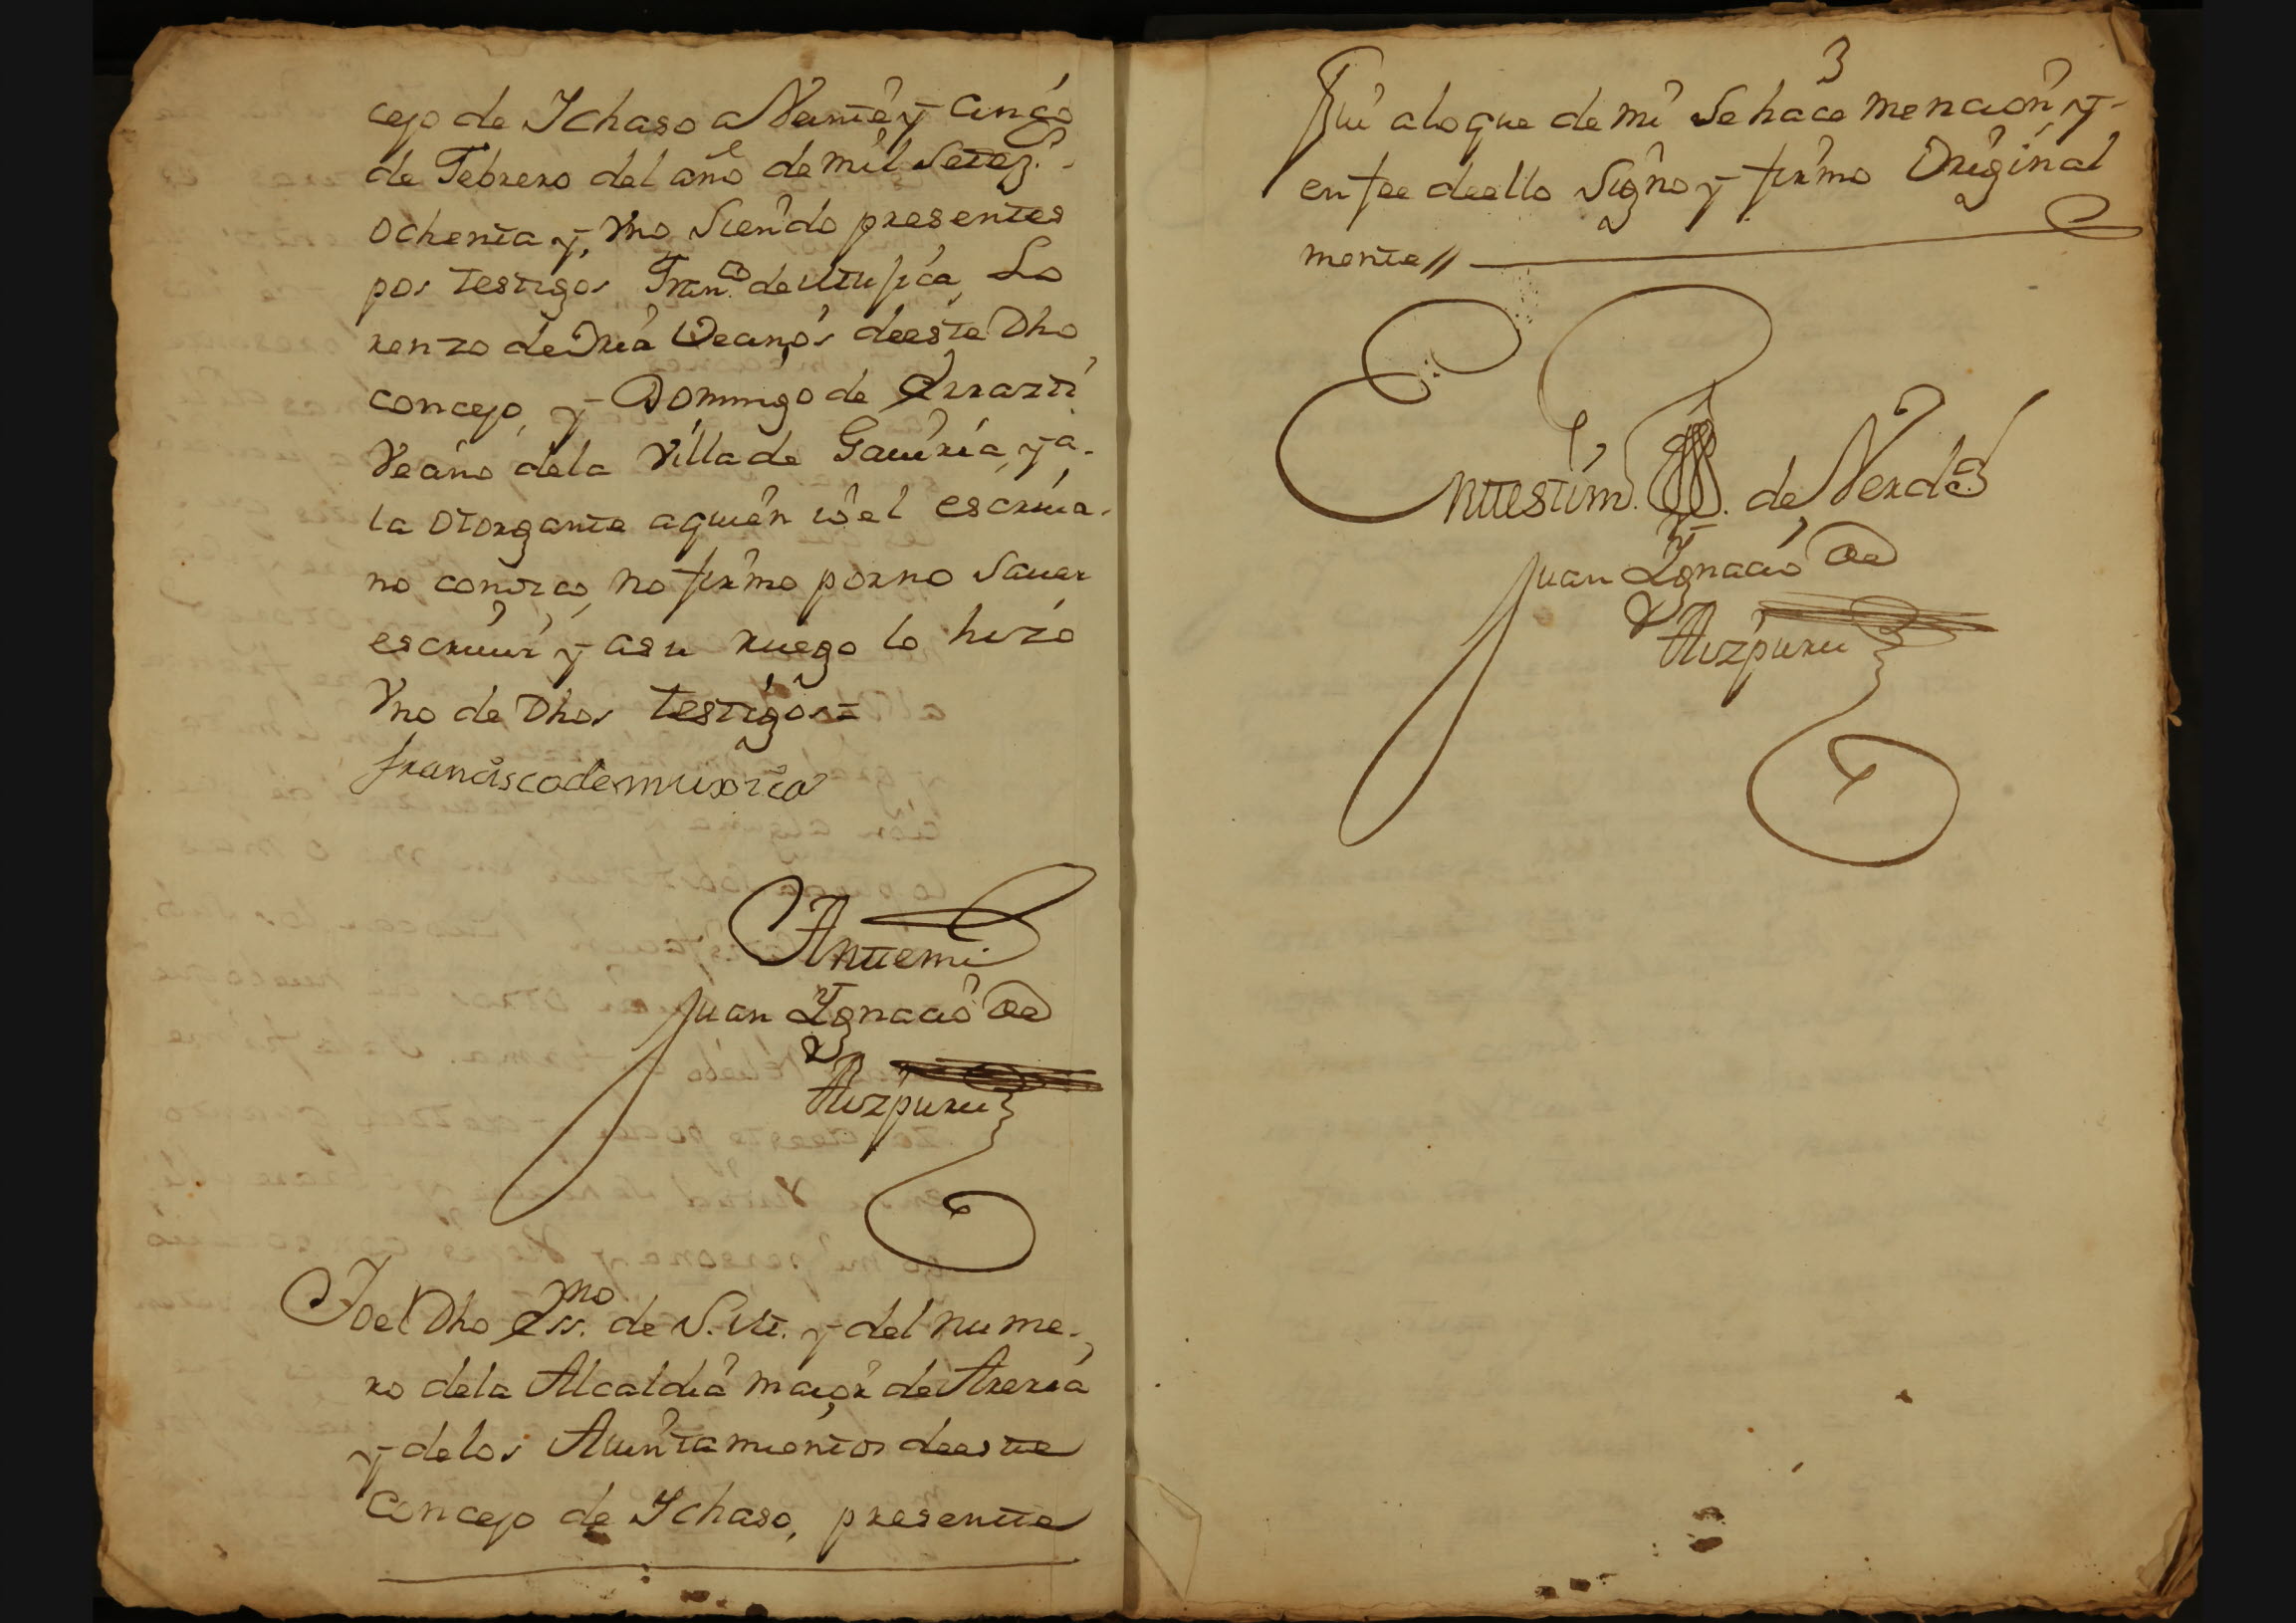 cejo de Ychaso a Veinte y cinco
de Febrero del año de mil Setez.s
ochenta y Vno Siendo presentes
por testigos Fran.co de Muxica, Lo
renzo de Oria Vecinos de este Dho
concejo, y Domingo de Errazti
Vecino dela Villa de Gaviria, y a-
la otorgante aquien io el escriua-
no conozco, no firmo por no Sauer
escriuir y asu ruego lo hizo
Vno de Dhos testigos=
francisco de muxica
Antemi
Juan Ygnacio de
Aizpuru
Yo el Dho Ess.no de S.M. y del nume-
ro dela Alcaldia maior de Areria
y delos Aiuntamientos de este
concejo de Ychaso, presente
3
Fui alo que de mi Se hace mencion, y-
en fee de ello Signo y firmo Original
mente//
En testim.o de Verdad
Juan Ygnacio de
Aizpuru